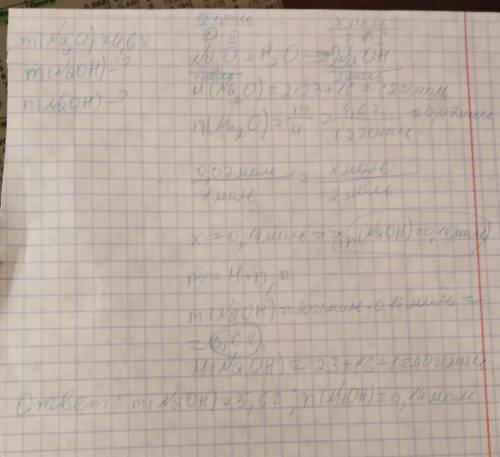 m(Na₂O)=4,6г
m(NaOH)-?
n(NaOH)-?
x моль
Na₂O + H₂O = 2NaOH
1моль 2моль
M(Na₂O)=2·23+16=62г/моль
n(Na₂O)=m/M= /62г/моль=0,07моль
0,07моль/1моль = x моль/2моль
x=0,14моль= n(NaOH)=0,14моль
m=M·n,
m(NaOH)= ·0,14моль=
=5,6г
M(NaOH)=23+16+1=40г/моль
Ответ: m(NaOH)=5,6г; n(NaOH)=0,14моль